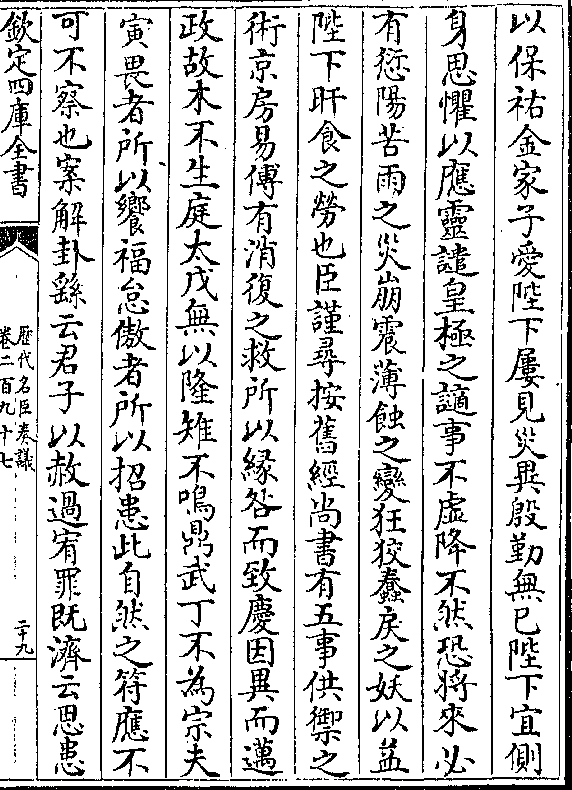 以保祐金家子愛陛下屢見災異殷勤無已陛下宜側
身思懼以應靈譴皇極之謫事不虛降不然恐將來必
有愆陽苦雨之災崩震薄蝕之變狂狡蠢戾之妖以益
陛下旰食之勞也臣謹尋按舊經尚書有五事供禦之
術京房易傳有消復之救所以緣咎而致慶因異而邁
政故木不生庭太戊無以隆雉不鳴鼎武丁不為宗夫
寅畏者所以饗福怠傲者所以招患此自然之符應不
可不察也案解卦繇云君子以赦過宥罪既濟云思患
欽定四庫全書
歷代名臣奏議
卷二百九十七
二十九